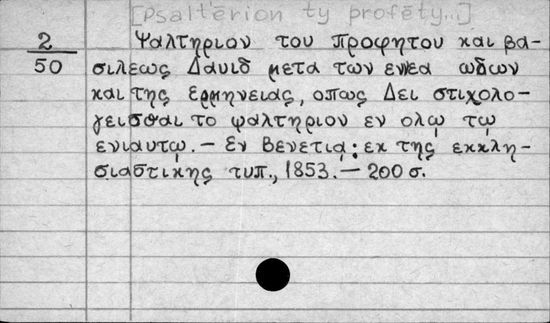 [Psaltērion ty profēty...]
2 Ψαλτηριον του προφητου και βα-
50 σιλεως Δαυιδ μετα των εννεα ωδων
και της ερμηνειας, οπως Δει στιχολο-
γεισθαι το ψαλτηριον εν ολῳ τῳ
ενιαυτῳ. – Εν Βενετιᾳ: εκ της εκκλη-
σιαστικης τυπ., 1853. – 200 σ.